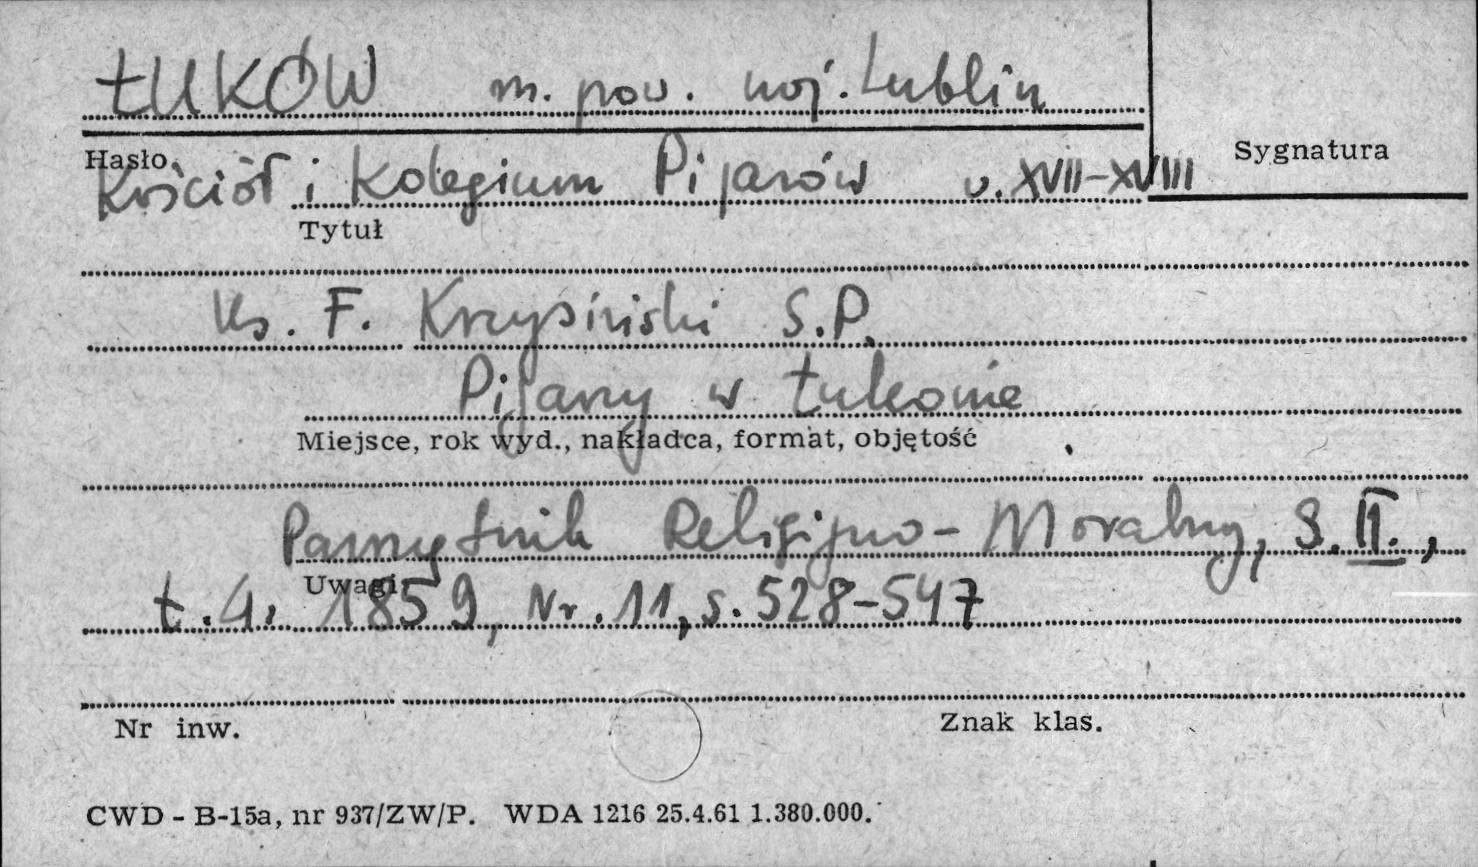 ŁUKÓW m. pow. woj. Lublin
Hasło
Sygnatura
Kościół i Kolegium Pijarów w. XVII-XVIII
Tytuł
Ks. F. Krzysiński S.P.
Pijarzy w Łukowie
Miejsce, rok wyd., nakładca, format, objętość
Pamiętnik Religijno-Moralny, S. II.,
Uwagi
t. 4. 1859, Nr. 11, s. 528-547
Nr inw. Znak klas.
CWD - B-15a, nr 937/ZW/P. WDA 1216 25.4.61 1.380.000.